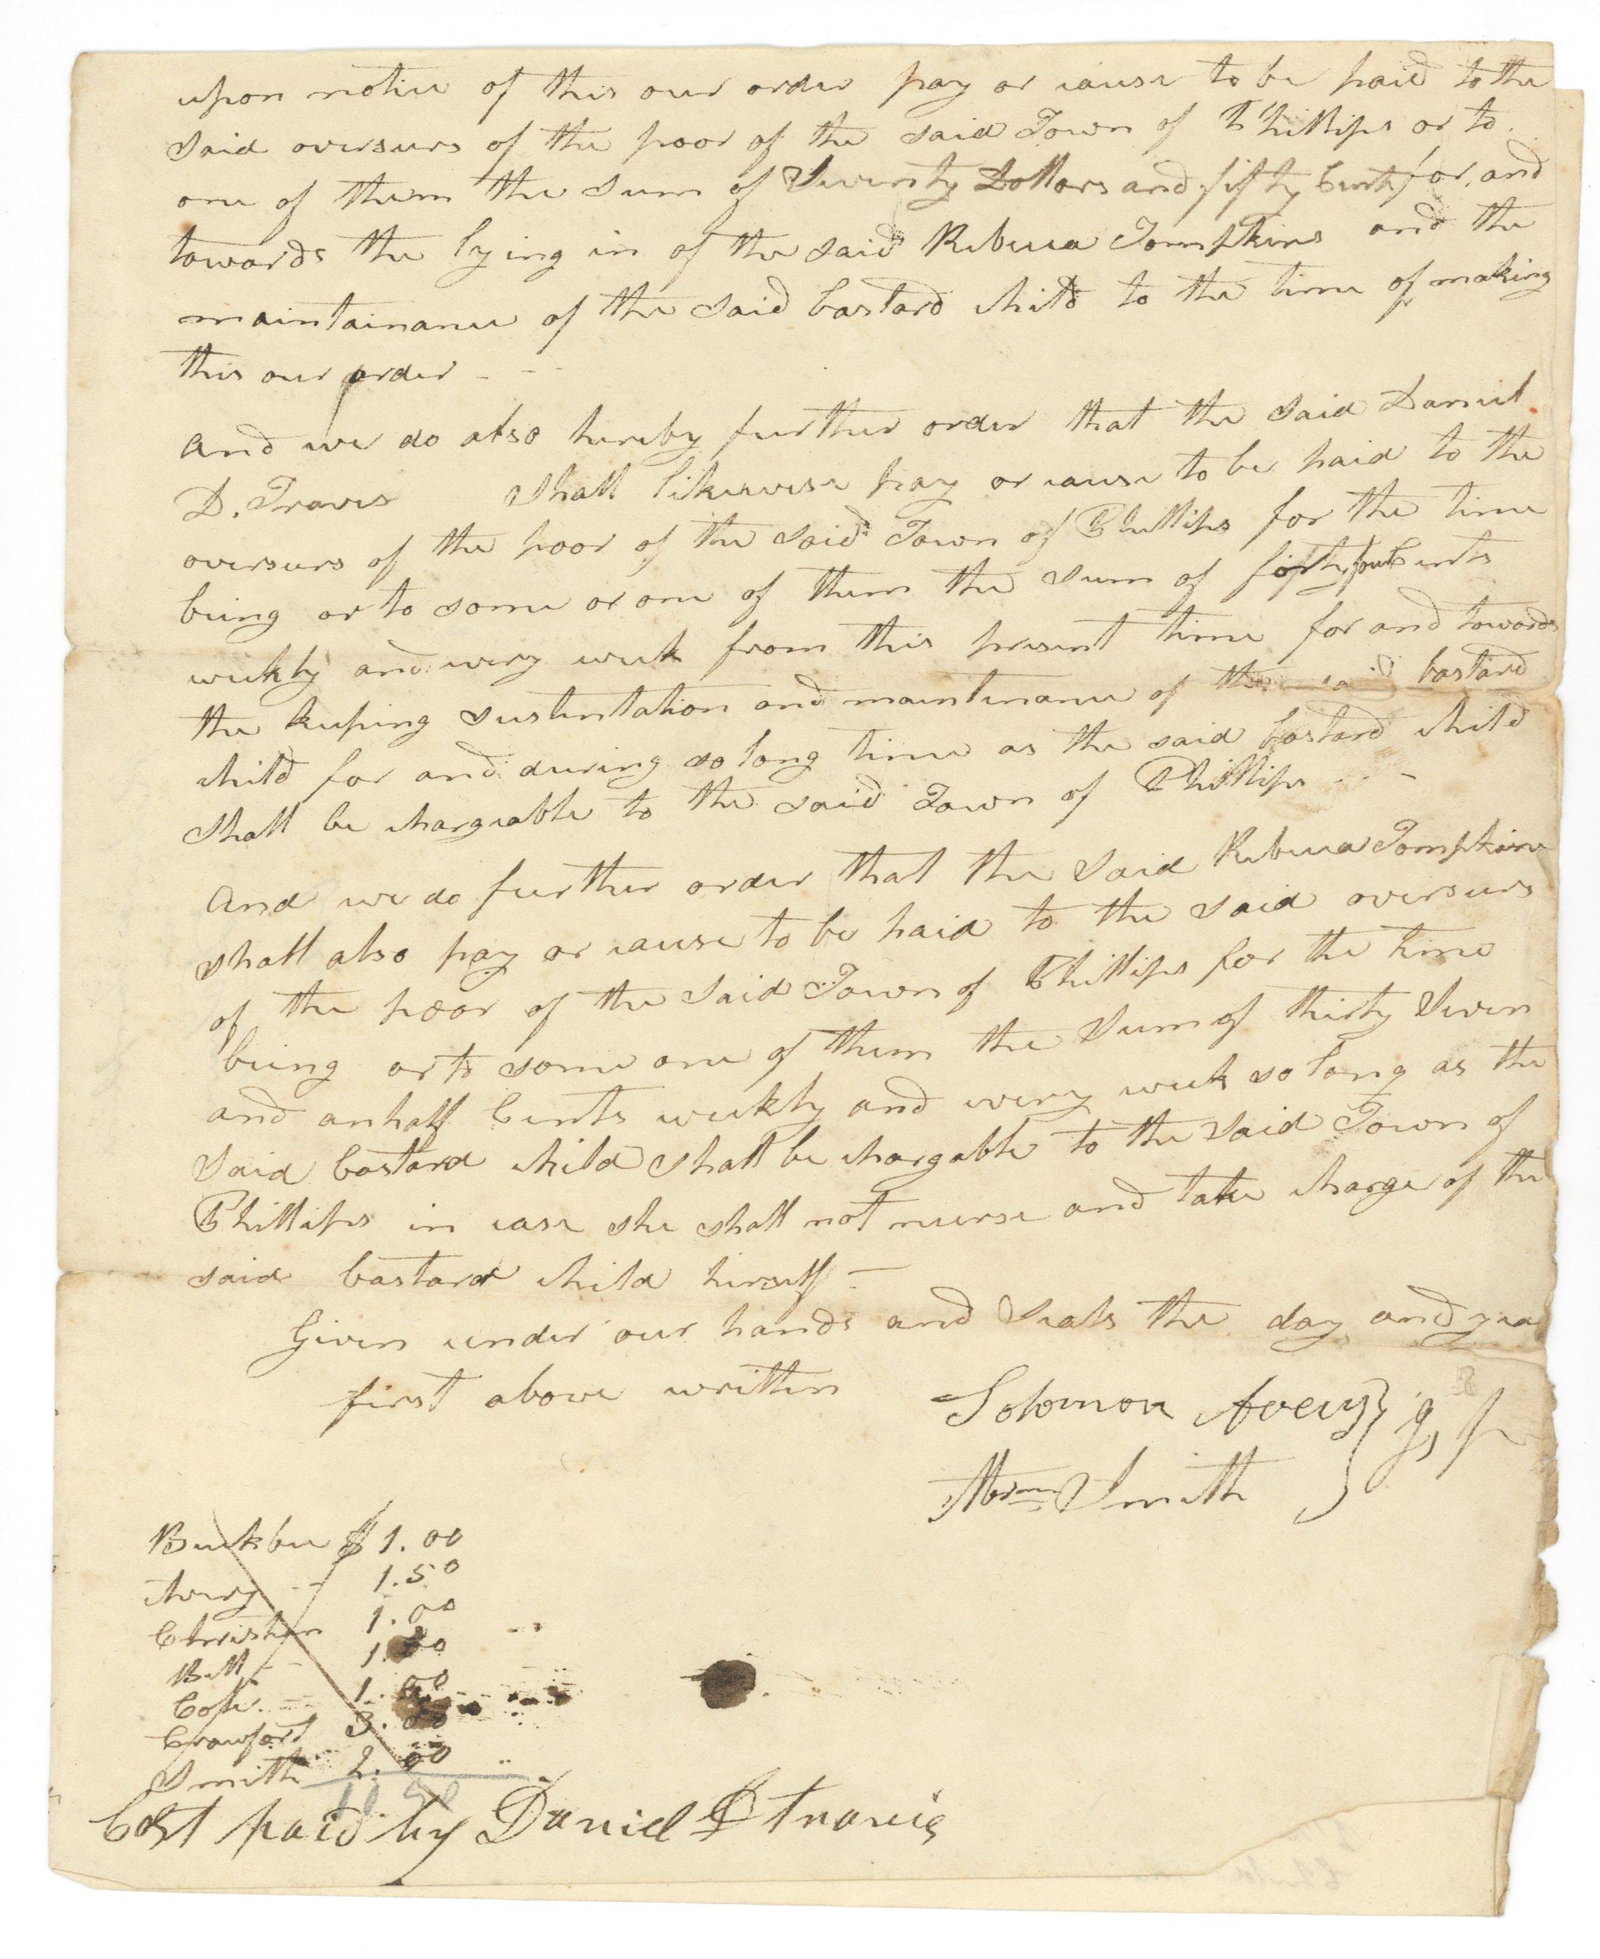 upon notice of this our order pay or cause to be paid to the
said overseers of the poor of the said Town of Phillips or to
one of them the sum of Seventy Dollars and fifty Cents for and
towards the lying in of the said Rebecca Tompkins and the
maintainance of the said bastard child to the time of making
this our order - -
And we do also hereby further order that the said Daniel
D. Travis shall likewise pay or cause to be paid to the
overseers of the poor of the said Town of Phillips for the time
being or to some or one of them the sum of forty four Cents
weekly and every week from this present time for and towards
the keeping sustentation and maintenance of the said bastard
child for and during so long time as the said bastard child
shall be chargeable to the said Town of Phillips - - -
And we do further order that the said Rebecca Tompkins
shall also pay or cause to be paid to the said overseers
of the poor of the said Town of Phillips for the time
being or to some one of them the sum of thirty Seven
and an half Cents weekly and every week so long as the
said bastard child shall be chargable to the said Town of
Phillips in case she shall not nurse and take charge of the
said bastard child herself -
Given under our hands and seals the day and year
first above written
Solomon Avery } J, P
Abrm Smith
Buckbee $ 1.00
Avery - - 1.50
Christian 1.00
Bell - - 1.00
Cole - - 1.00
Crawfort 3.00
Smith 2.00
11 50
Cost paid by Daniel D travis